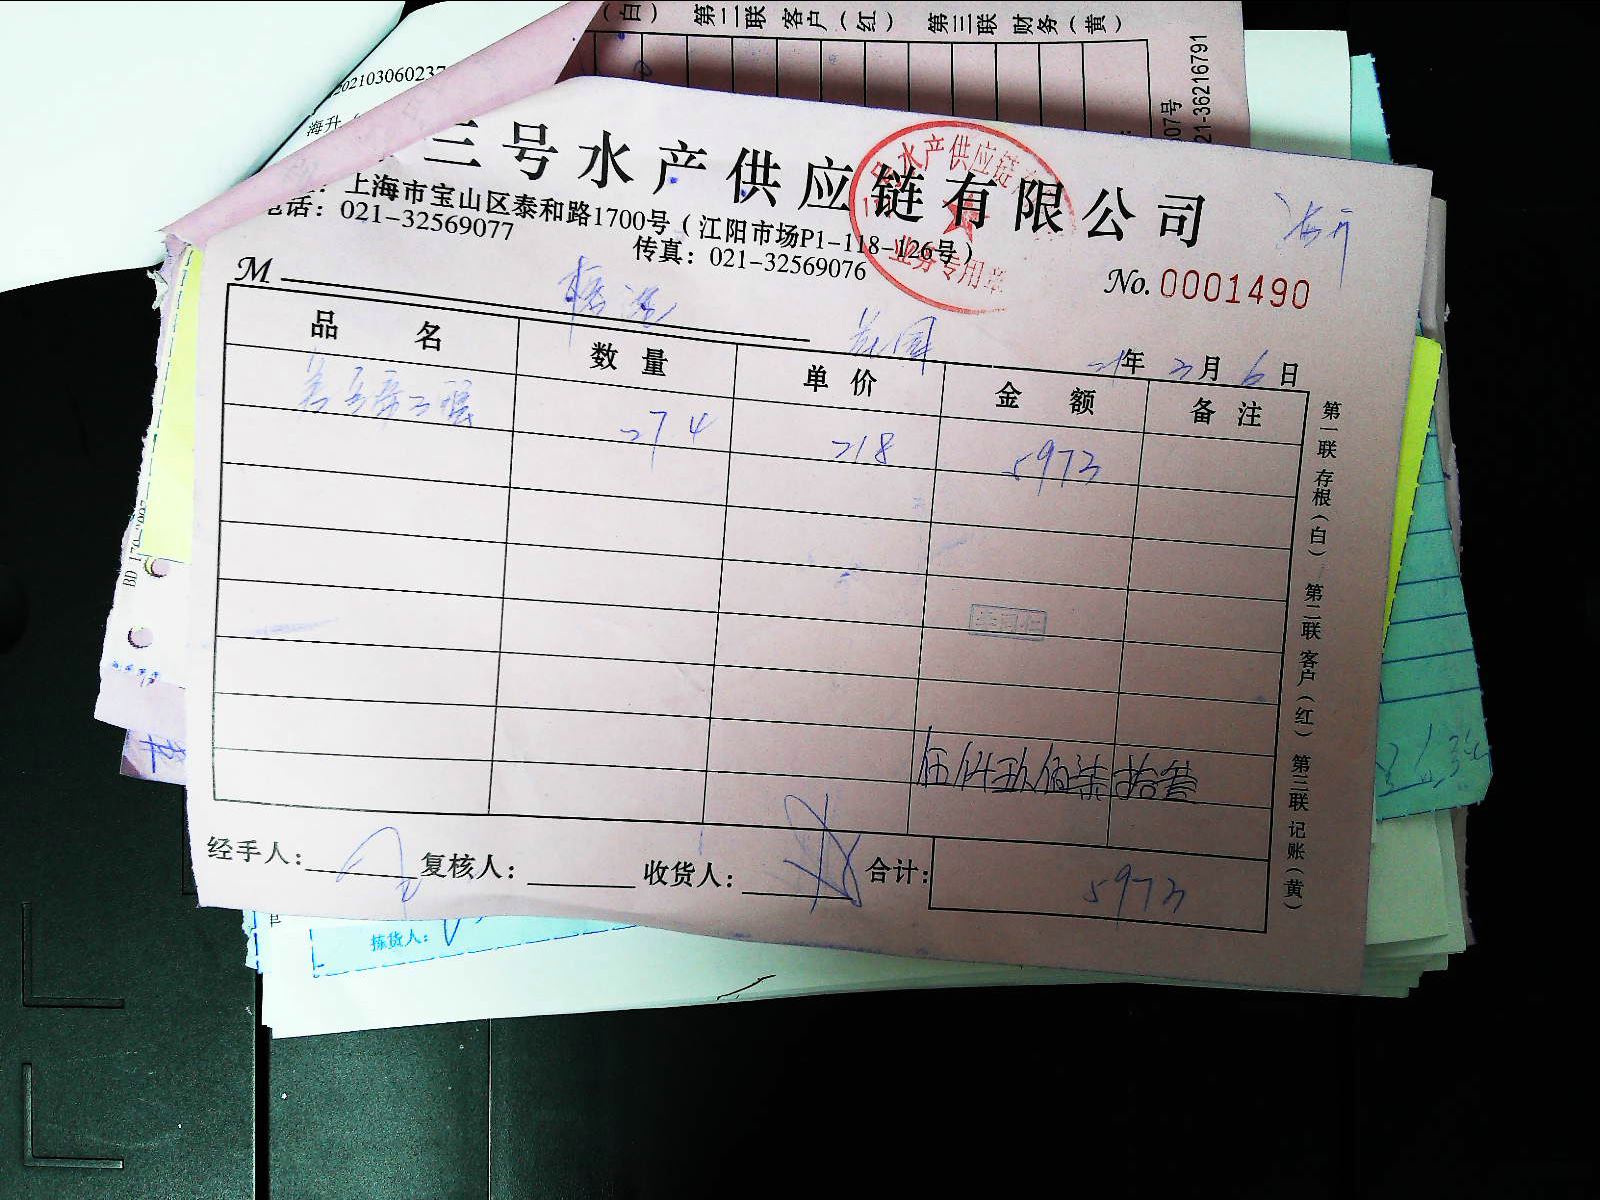 （白） 第二联 客户（红） 第三联 财务（黄）
202103060237
海升
21-36216791
07号
三号水产供应链有限公司
水产供应链有
业务专用章
上海市宝山区泰和路1700号（江阳市场P1-118-126号）
电话：021-32569077 传真：021-32569076
海升
No. 0001490
M
21年 3月 6日
品 名 数 量 单 价 金 额 备 注
274 218 5973
伍仟玖佰柒拾叁
经手人： 复核人： 收货人： 合计： 5973
第一联 存根（白） 第二联 客户（红） 第三联 记账（黄）
拣货人：